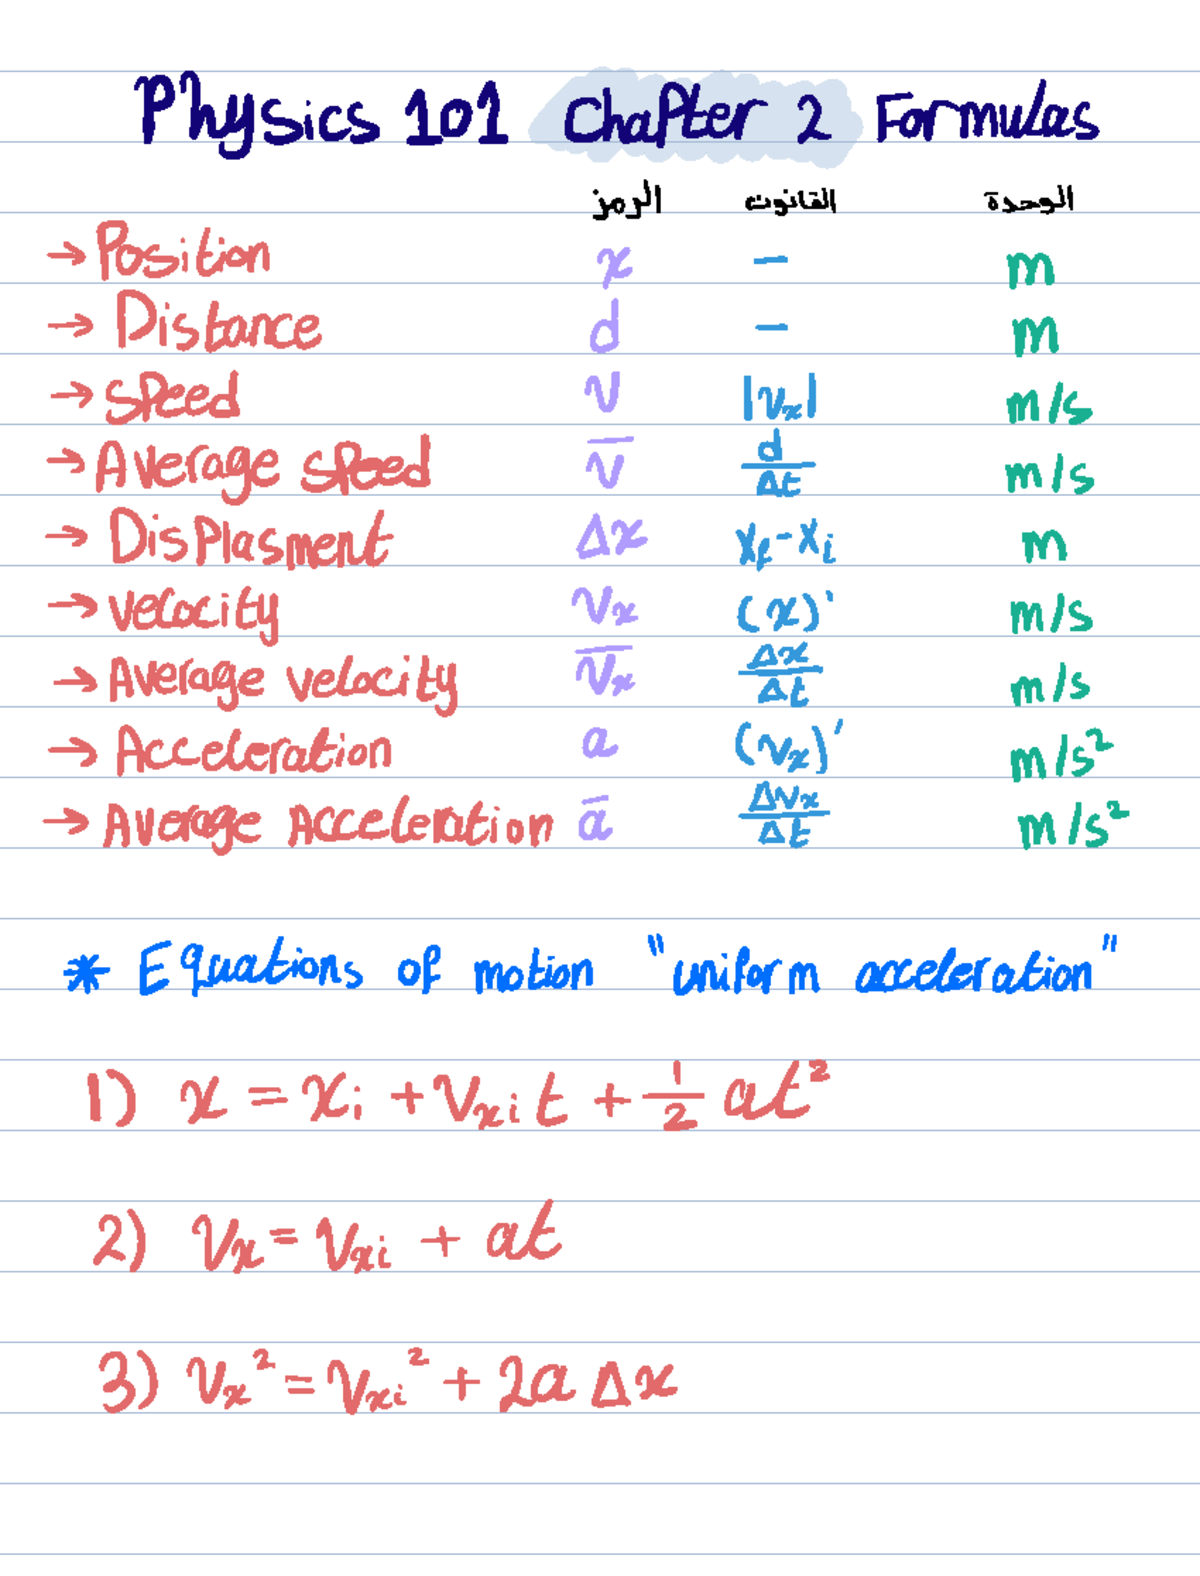 Physics 101 Chapter 2 Formulas
الرمز القانون الوحدة
→ Position x – m
→ Distance d – m
→ speed v |vₓ| m/s
→ Average speed v̅ d/Δt m/s
→ Displasment Δx x_f - x_i m
→ velocity vₓ (x)' m/s
→ Average velocity v̅ₓ Δx/Δt m/s
→ Acceleration a (vₓ)' m/s²
→ Average Acceleration a̅ Δvₓ/Δt m/s²
* Equations of motion "uniform acceleration"
1) x = x_i + v_xi t + 1/2 at²
2) vₓ = v_xi + at
3) vₓ² = v_xi² + 2a Δx